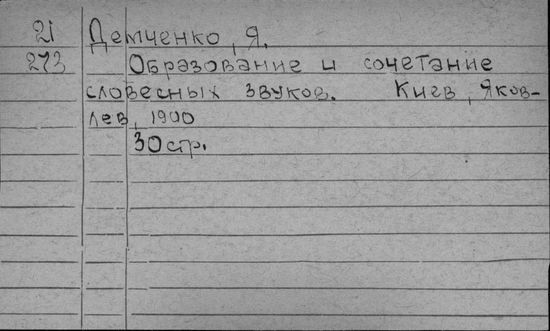 21 Демченко, Я.
273 Образование и сочетание
словесных звуков. Киев, Яков-
лев, 1900
30 стр.